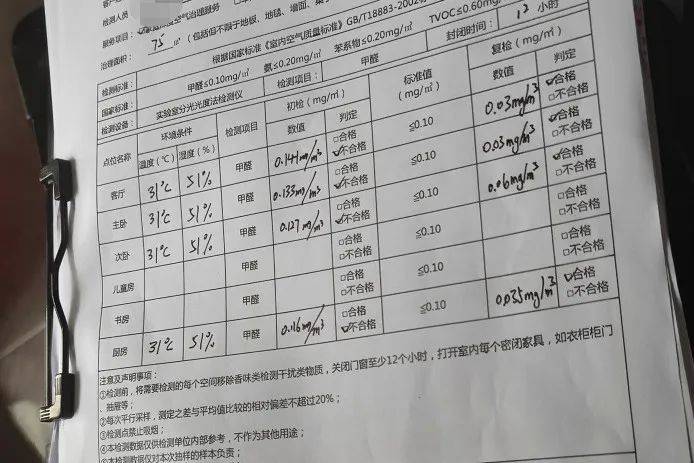 检测人员
服务项目： 空气治理服务
治理面积： 75 ㎡ （包括但不限于地板、地毯、墙面、
检测标准： 根据国家标准《室内空气质量标准》GB/T18883-2002
国家标准： 甲醛≤0.10mg/m³ 氨≤0.20mg/m³ 苯系物≤0.20mg/m³ TVOC≤0.60mg/
检测设备： 实验室分光光度法检测仪 检测项目： 甲醛 封闭时间： 12 小时
点位名称 环境条件 检测项目 初检（mg/m³） 标准值（mg/m³） 复检（mg/m³）
温度（℃） 湿度（%） 数值 判定 数值 判定
客厅 31℃ 51% 甲醛 0.141mg/m³ □合格 ☑不合格 ≤0.10 0.03mg/m³ ☑合格 □不合格
主卧 31℃ 51% 甲醛 0.133mg/m³ □合格 ☑不合格 ≤0.10 0.03mg/m³ ☑合格 □不合格
次卧 31℃ 51% 甲醛 0.127mg/m³ □合格 ☑不合格 ≤0.10 0.06mg/m³ ☑合格 □不合格
儿童房 甲醛 □合格 □不合格 ≤0.10 □合格 □不合格
书房 甲醛 □合格 □不合格 ≤0.10 □合格 □不合格
厨房 31℃ 51% 甲醛 0.116mg/m³ □合格 ☑不合格 ≤0.10 0.035mg/m³ ☑合格 □不合格
注意及声明事项：
①检测前，将需要检测的每个空间移除香味类检测干扰类物质，关闭门窗至少12个小时，打开室内每个密闭家具，如衣柜柜门
、抽屉等；
②每次平行采样，测定之差与平均值比较的相对偏差不超过20%；
③检测点禁止吸烟；
④本检测数据仅供检测单位内部参考，不作为其他用途；
⑤本检测数据仅对本次抽样的样本负责；